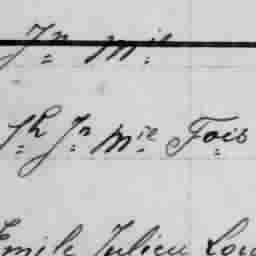 Jn Mie
Jh Jn Mie Fois
Emile Julien Lou